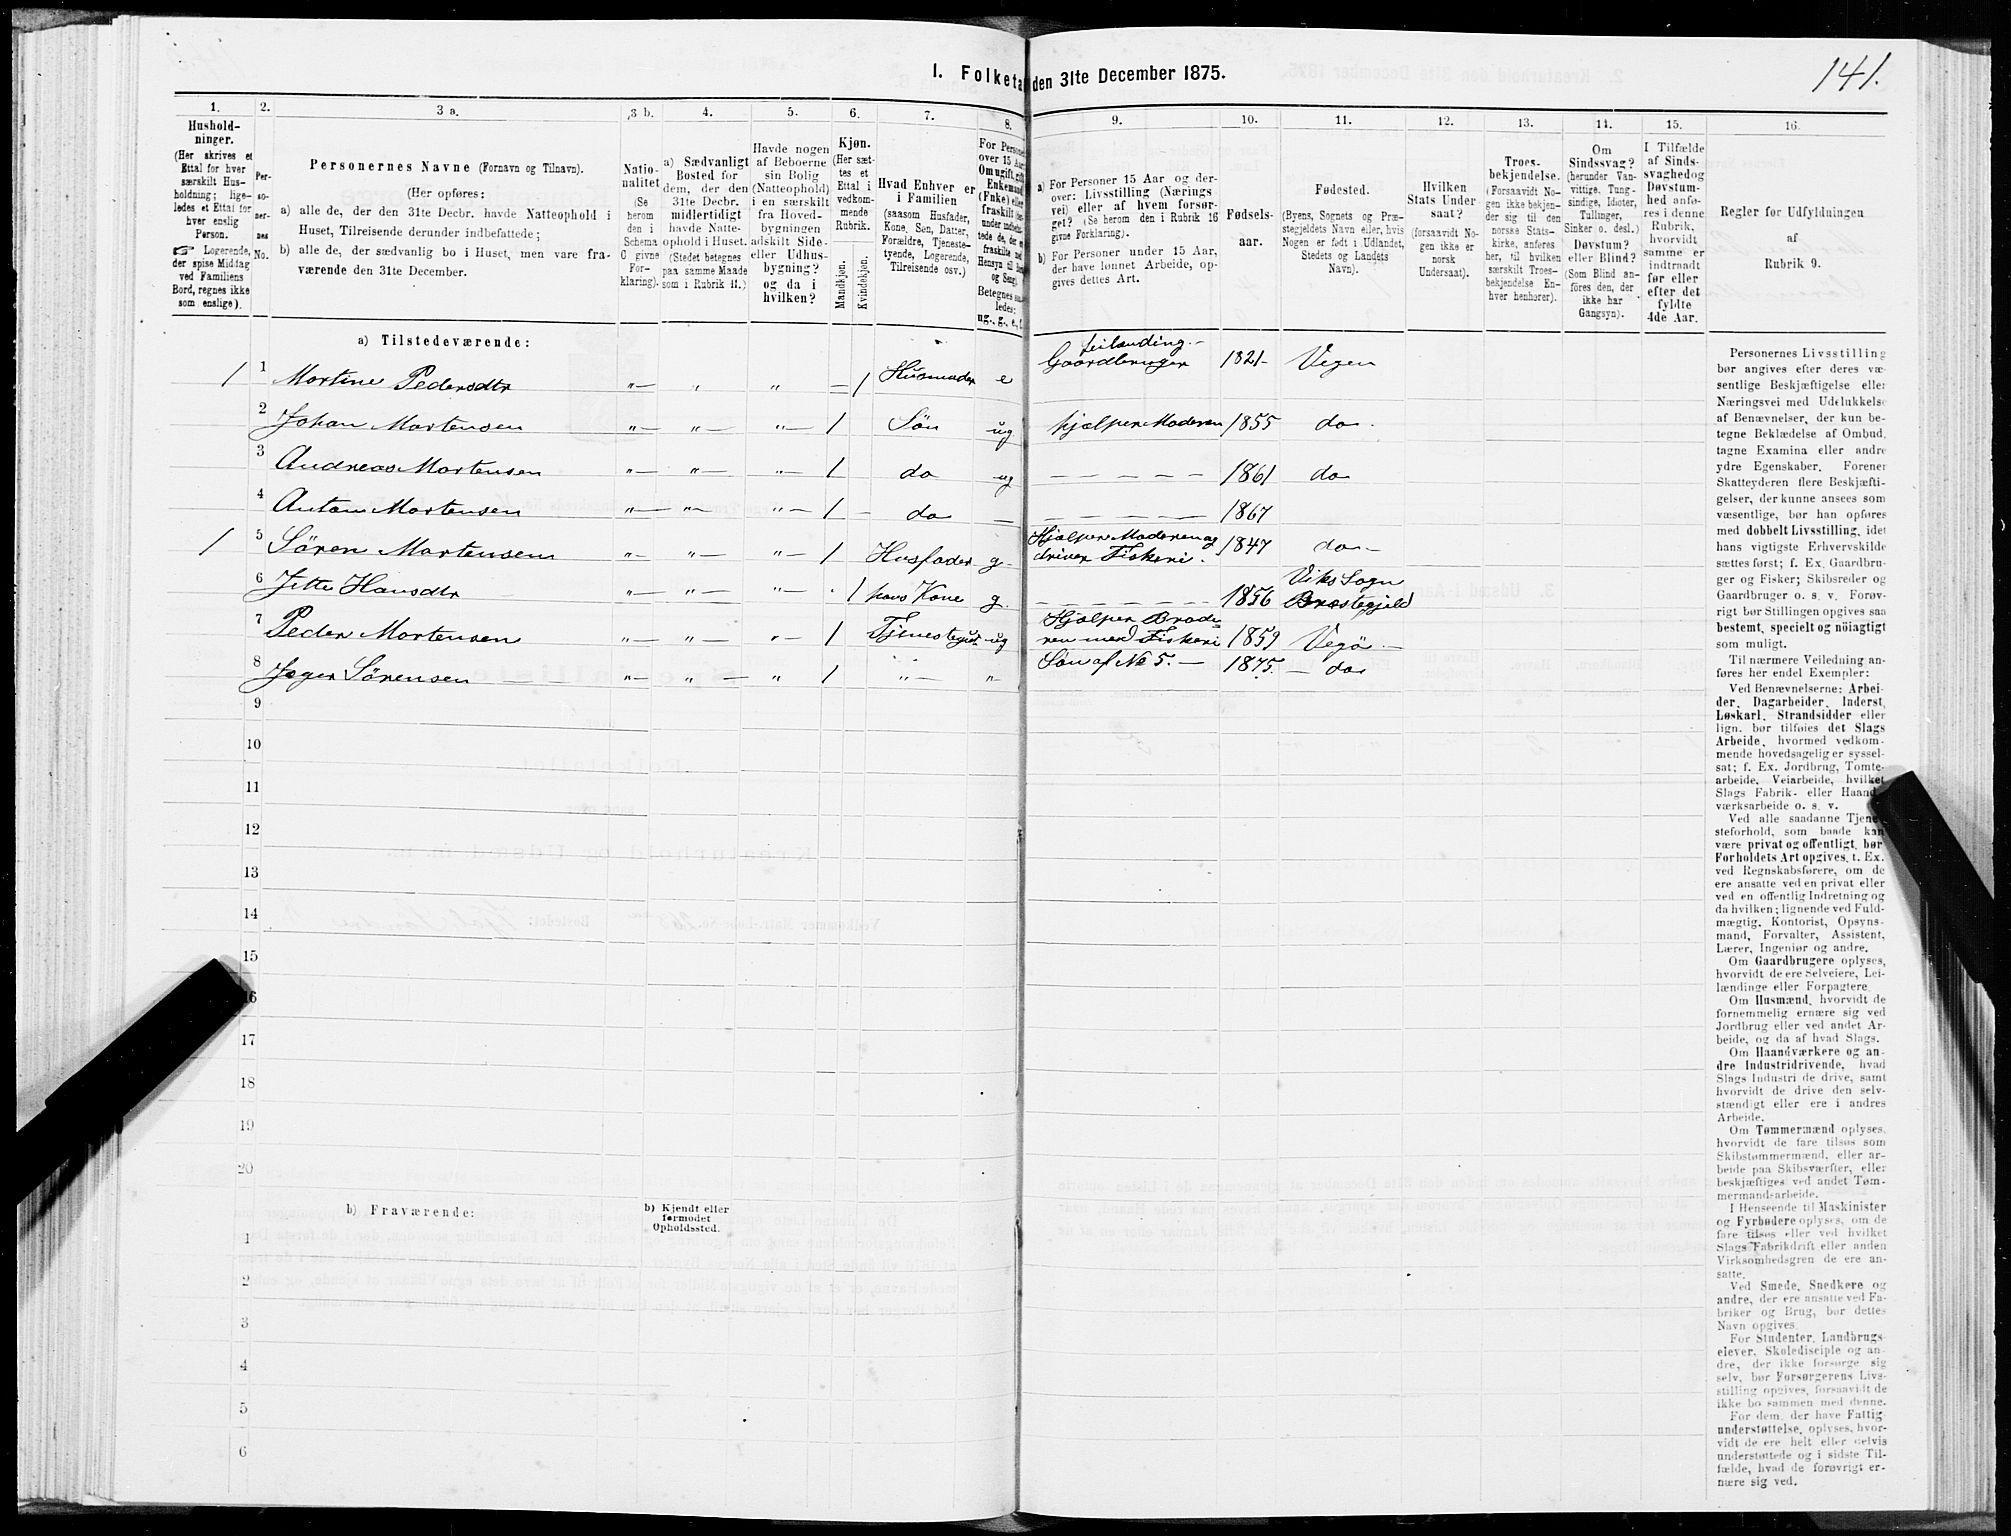 141.
I. Folketæ den 31te December 1875.
1. 2. 3 a. 3 b. 4. 5. 6. 7. 8. 9. 10. 11. 12. 13. 14. 15. 16.
Hushold-
ninger.
(Her skrives et
Ettal for hver
særskilt Hus-
holdning; lige-
ledes et Ettal for
hver enslig
Person.
☞ Logerende,
der spise Middag
ved Familiens
Bord, regnes ikke
som enslige).
Per-
so-
ner-
nes
No.
Personernes Navne (Fornavn og Tilnavn).
(Her opføres:
a) alle de, der den 31te Decbr. havde Natteophold i
Huset, Tilreisende derunder indbefattede;
b) alle de, der sædvanlig bo i Huset, men vare fra-
værende den 31te December.
Natio-
nalitet
(Se
herom
den i
Schema
C givne
For-
klaring).
a) Sædvanligt
Bosted for
dem, der den
31te Decbr.
midlertidigt
havde Natte-
ophold i Huset.
(Stedet betegnes
paa samme Maade
som i Rubrik 11.)
Havde nogen
af Beboerne
sin Bolig
(Natteophold)
i en særskilt
fra Hoved-
bygningen
adskilt Side-
eller Udhus-
bygning?
og da i
hvilken?
Kjøn.
(Her sæt-
tes et
Ettal i
vedkom-
mende
Rubrik.
Mandkjøn.
Kvindekjøn.
Hvad Enhver er
i Familien
(saasom Husfader,
Kone, Søn, Datter,
Forældre, Tjeneste-
tyende, Logerende,
Tilreisende osv.)
For Persone
over 15 Aar
Om ugift, gift
Enkemand
(Enke) eller
fraskilt
ug., g., e., f.
a) For Personer 15 Aar og der-
over: Livsstilling (Nærings
vei) eller af hvem forsør-
get? (Se herom den i Rubrik 16
givne Forklaring).
b) For Personer under 15 Aar,
der have lønnet Arbeide, op-
gives dettes Art.
Fødsels-
aar.
Fødested.
(Byens, Sognets og Præ-
stegjeldets Navn eller, hvis
Nogen er født i Udlandet,
Stedets og Landets
Navn).
Hvilken
Stats Under
saat?
(forsaavidt No-
gen ikke er
norsk
Undersaat).
Troes-
bekjendelse.
(Forsaavidt No-
gen ikke bekjen-
der sig til den
norske Stats-
kirke, anføres
her, til hvilken
særskilt Troes-
bekjendelse En-
hver henhører).
Om
Sindssvag?
(herunder Van-
vittige, Tung-
sindige, Idioter,
Tullinger,
Sinker o. desl.)
Døvstum?
eller Blind?
(Som Blind an-
føres den, der
ikke har
Gangsyn).
I Tilfælde
af Sinds-
svaghed og
Døvstum-
hed anfø-
res i denne
Rubrik,
hvorvidt
samme er
indtraadt
før eller
efter det
fyldte
4de Aar.
Regler for Udfyldningen
af
Rubrik 9.
a) Tilstedeværende:
1 1 Martine Pedersdtr "– " " – 1 Husmoder e Gaardbruger leilending. – 1821– Vegen
2 Johan Mortensen "– "– "– 1 Søn ug hjælper Moderen 1855 do.
3 Andreas Mortensen "– "– "– 1 do ug – – – – – 1861 do
4 Anton Mortensen "– "– "– 1 – do – – – – – – 1867
1 5 Sören Mortensen "– "– "– 1 Husfader g. Hjælper Moderen og driver Fiskeri. 1847 do –
6 Jette Hansdtr "– "– "– 1 hans Kone g. – – – – – 1856 Viks Sogn Brøstegjeld
7 Peder Mortensen "– "– "– 1 Tjenestegut ug Hjælper Brode= ren med Fiskeri 1859 Vegö –
8 Jeger Sörensen "– "– " 1 "– "– Søn af No 5. – 1875. – do
9
10
11
12
13
14
15
16
17
18
19
20
b) Fraværende:
b) Kjendt eller
formodet
Opholdssted.
1
2
3
4
5
6
Personernes Livsstilling
bør angives efter deres væ-
sentlige Beskjæftigelse eller
Næringsvei med Udelukkelse
af Benævnelser, der kun be-
tegne Beklædelse af Ombud,
tagne Examina eller andre
ydre Egenskaber. Forener
Skatteyderen flere Beskjæfti-
gelser, der kunne ansees som
væsentlige, bør han opføres
med dobbelt Livsstilling, idet
hans vigtigste Erhvervskilde
sættes først; f. Ex. Gaardbru-
ger og Fisker; Skibsreder og
Gaardbruger o. s. v. Forøv-
rigt bør Stillingen opgives saa
bestemt, specielt og nöiagtigt
som muligt.
Til nærmere Veiledning an-
føres her endel Exempler:
Ved Benævnelserne: Arbei-
der, Dagarbeider, Inderst,
Løskarl, Strandsidder eller
lign. bør tilføies det Slags
Arbeide, hvormed vedkom-
mende hovedsagelig er syssel-
sat; f. Ex. Jordbrug, Tomte-
arbeide, Veiarbeide, hvilket
Slags Fabrik- eller Haand-
værksarbeide o. s. v.
Ved alle saadanne Tjene-
steforhold, som baade kan
være privat og offentligt, bør
Forholdets Art opgives, t. Ex.
ved Regnskabsførere, om de
ere ansatte ved en privat eller
ved en offentlig Indretning og
da hvilken; lignende ved Fuld-
mægtig, Kontorist, Opsyns-
mand, Forvalter, Assistent,
Lærer, Ingeniør og andre.
Om Gaardbrugere oplyses,
hvorvidt de ere Selveiere, Lei-
lændinge eller Forpagtere.
Om Husmænd, hvorvidt de
fornemmelig ernære sig ved
Jordbrug eller ved andet Ar-
beide, og da af hvad Slags.
Om Haandværkere og an-
dre Industridrivende, hvad
Slags Industri de drive, samt
hvorvidt de drive den selv-
stændigt eller ere i andres
Arbeide.
Om Tømmermænd oplyses,
hvorvidt de fare tilsøs som
Skibstømmermænd, eller ar-
beide paa Skibsværfter, eller
beskjæftiges ved andet Tøm-
mermandsarbeide.
I Henseende til Maskinister
og Fyrbødere oplyses, om de
fare tilsøs eller ved hvilket
Slags Fabrikdrift eller anden
Virksomhedsgren de ere an-
satte.
Ved Smede, Snedkere og
andre, der ere ansatte ved Fa-
briker og Brug, bør dettes
Navn opgives.
For Studenter, Landbrugs-
elever, Skoledisciple og an-
dre, der ikke forsørge sig
selv, bør Forsørgerens Livs-
stilling opgives, forsaavidt de
ikke bo sammen med denne.
For dem, der have Fattig-
understøttelse, oplyses, hvor-
vidt de ere helt eller delvis
understøttede og i sidste Til-
fælde, hvad de forøvrigt er-
nære sig ved.